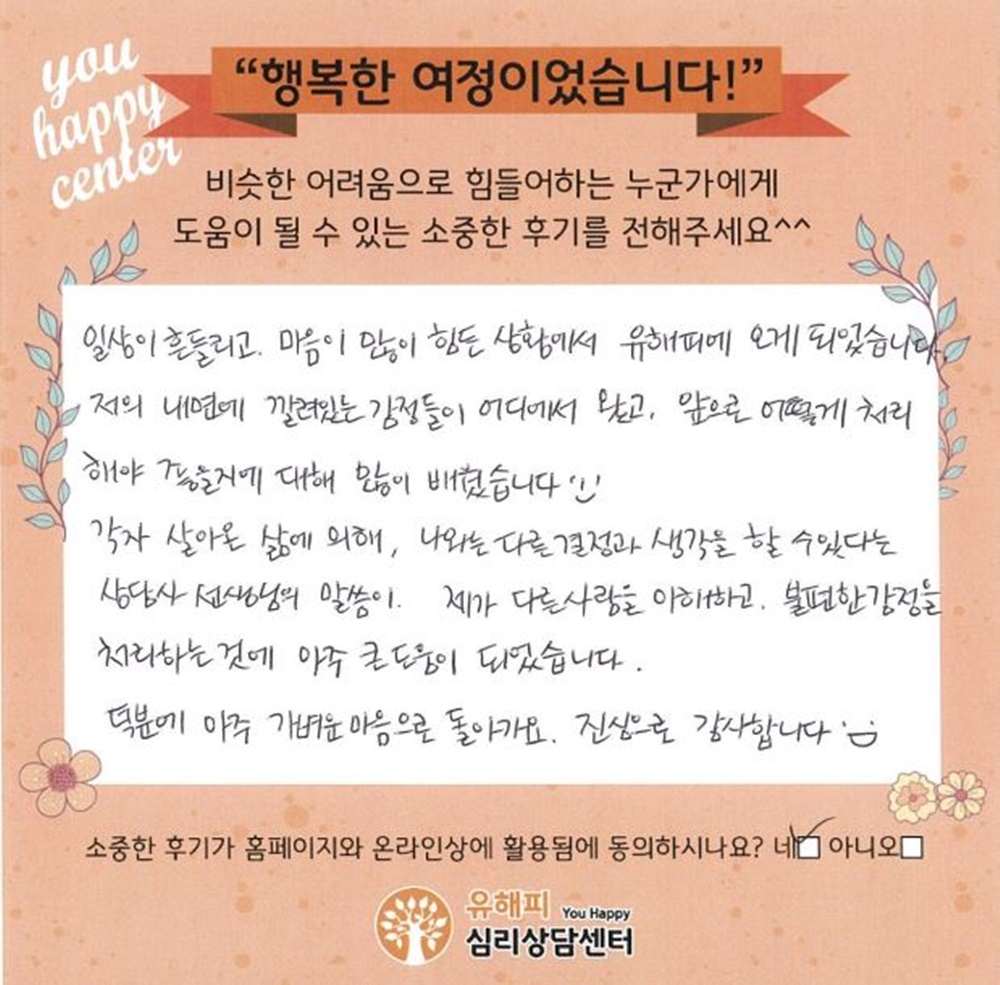 you
happy
center
“행복한 여정이었습니다!”
비슷한 어려움으로 힘들어하는 누군가에게
도움이 될 수 있는 소중한 후기를 전해주세요^^
일상이 흔들리고. 마음이 많이 힘든 상황에서 유해피에 오게 되었습니다.
저의 내면에 깔려있는 감정들이 어디에서 왔고, 앞으로 어떻게 처리
해야 좋을지에 대해 많이 배웠습니다
각자 살아온 삶에 의해, 나와는 다른 결정과 생각을 할 수 있다는
상담사 선생님의 말씀이. 제가 다른사람을 이해하고. 불편한 감정을
처리하는 것에 아주 큰 도움이 되었습니다.
덕분에 아주 가벼운 마음으로 돌아가요. 진심으로 감사합니다
소중한 후기가 홈페이지와 온라인상에 활용됨에 동의하시나요? 네 아니오
유해피 You Happy
심리상담센터